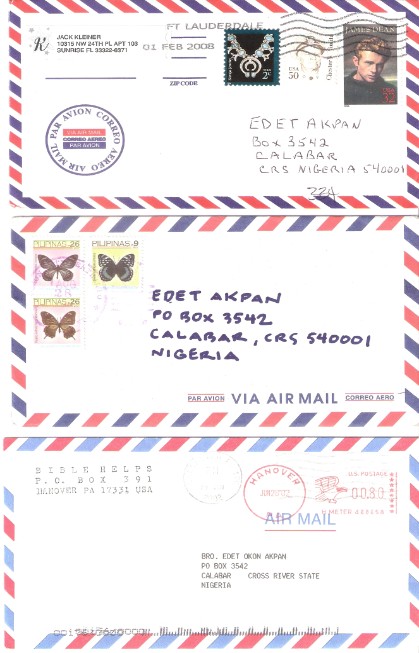 JACK KLEINER
10315 NW 24TH PL APT 103
SUNRISE FL 33322-6571
FT LAUDERDALE
01 FEB 2008
ZIP CODE
USA
50
JAMES DEAN
USA
32
PAR AVION CORREO AEREO AIR MAIL
VIA AIR MAIL
CORREO AEREO
PAR AVION
EDET AKPAN
BOX 3542
CALABAR
CRS NIGERIA 540001
224
PILIPINAS 26
PILIPINAS 9
PILIPINAS 26
EDET AKPAN
PO BOX 3542
CALABAR, CRS 540001
NIGERIA
PAR AVION VIA AIR MAIL CORREO AEREO
BIBLE HELPS
P.O. BOX 391
HANOVER PA 17331 USA
HANOVER
PA
U.S. POSTAGE
00.80
AIR MAIL
BRO. EDET OKON AKPAN
PO BOX 3542
CALABAR CROSS RIVER STATE
NIGERIA